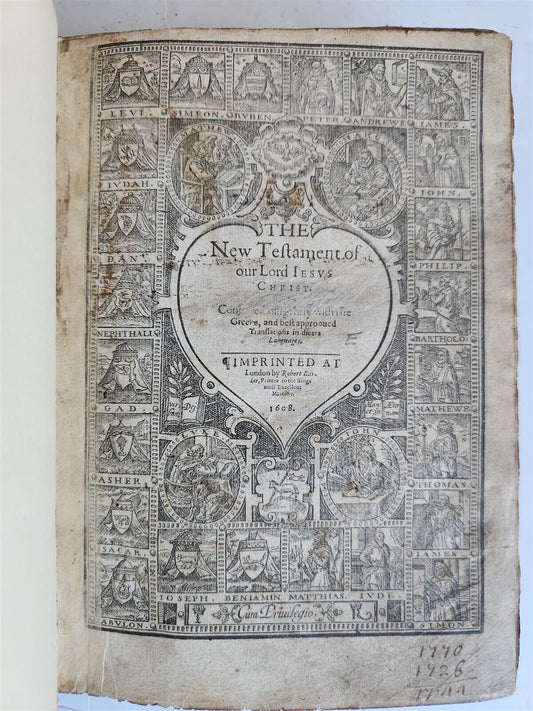 LEVI. SIMEON. RVBEN PETER ANDREWE IAMES
IVDAH.
IOHN.
THE
New Testament of
our Lord IESVS
CHRIST.
diligently with the
Greeke, and best approoued
Translations in diuers
Languages.
¶ IMPRINTED AT
London by Robert Bar-
ker, Printer to the Kings
most Excellent
Maiestie.
1608.
DAN.
PHILIP.
NEPHTHALI
BARTHOLO
GAD.
MATHEWE
ASHER.
THOMAS
SACAR.
IAMES
LVKE
IOHN
IOSEPH. BENIAMIN. MATTHIAS. IVDE.
ABVLON.
SIMON
Cum Priuilegio.
1770
1726